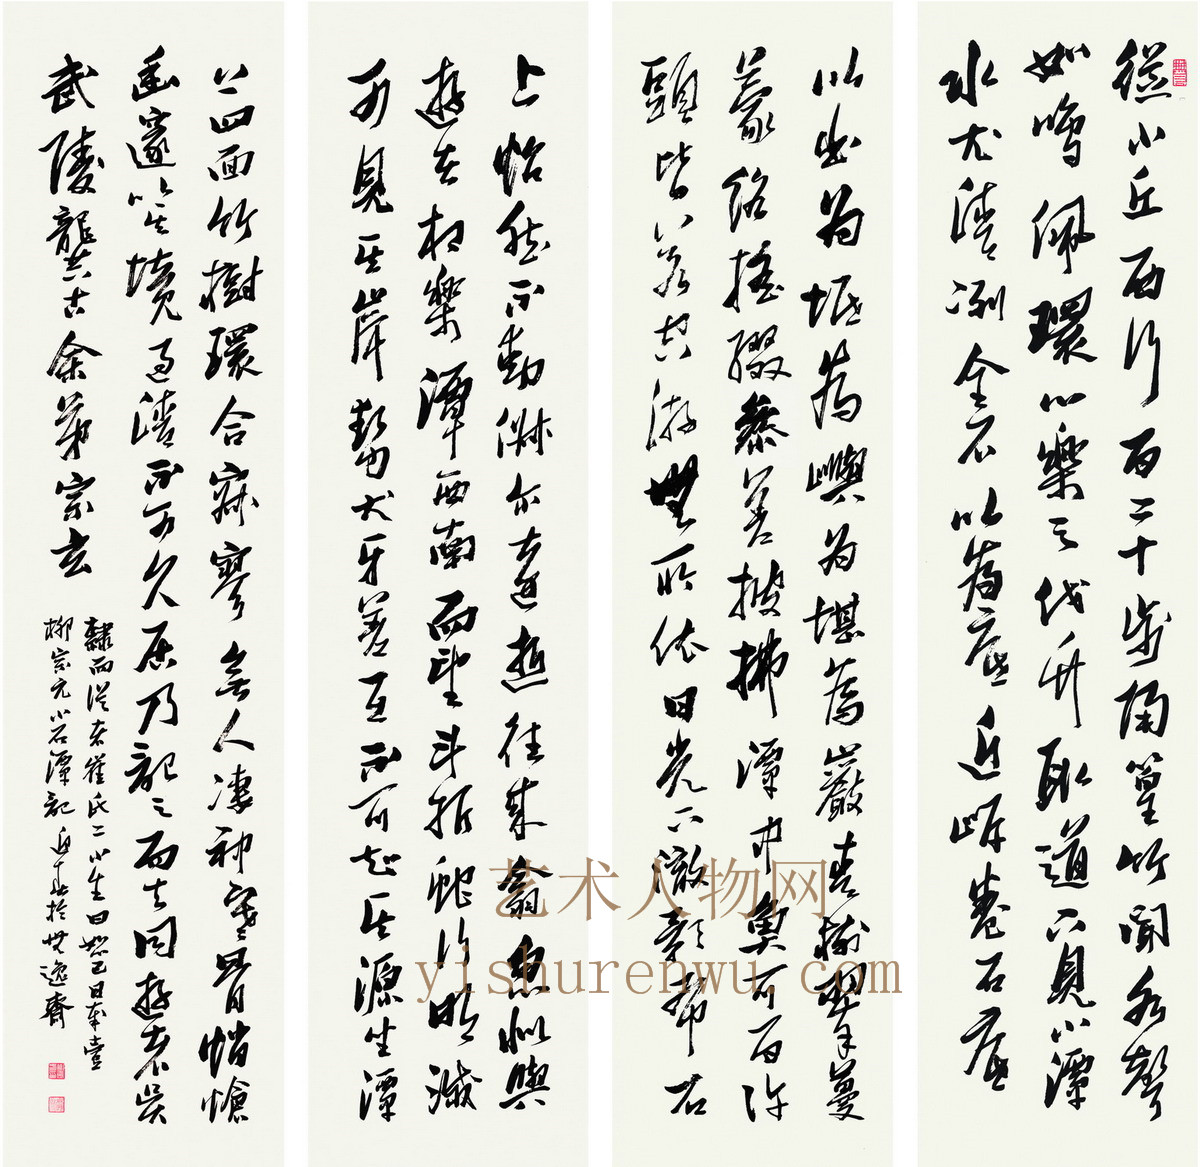 從小丘西行百二十步隔篁竹聞水聲
如鳴佩環心樂之伐竹取道下見小潭
水尤清冽全石以為底近岸卷石底
以出为坻為嶼为堪為巖青樹翠蔓
蒙絡搖綴參差披拂潭中魚可百許
頭皆若空游無所依日光下澈影布石
上怡然不動俶尔遠逝往來翕忽似與
遊者相樂潭西南而望斗折蛇行明滅
可見其岸勢犬牙差互不可知其源坐潭
上四面竹樹環合寂寥無人凄神寒骨悄愴
幽邃以其境過清不可久居乃記之而去同遊者吳
武陵龔古余弟宗玄
隸而從者崔氏二小生曰恕己曰奉壹
柳宗元小石潭記 於 逸齋
艺术人物网
yishurenwu.com